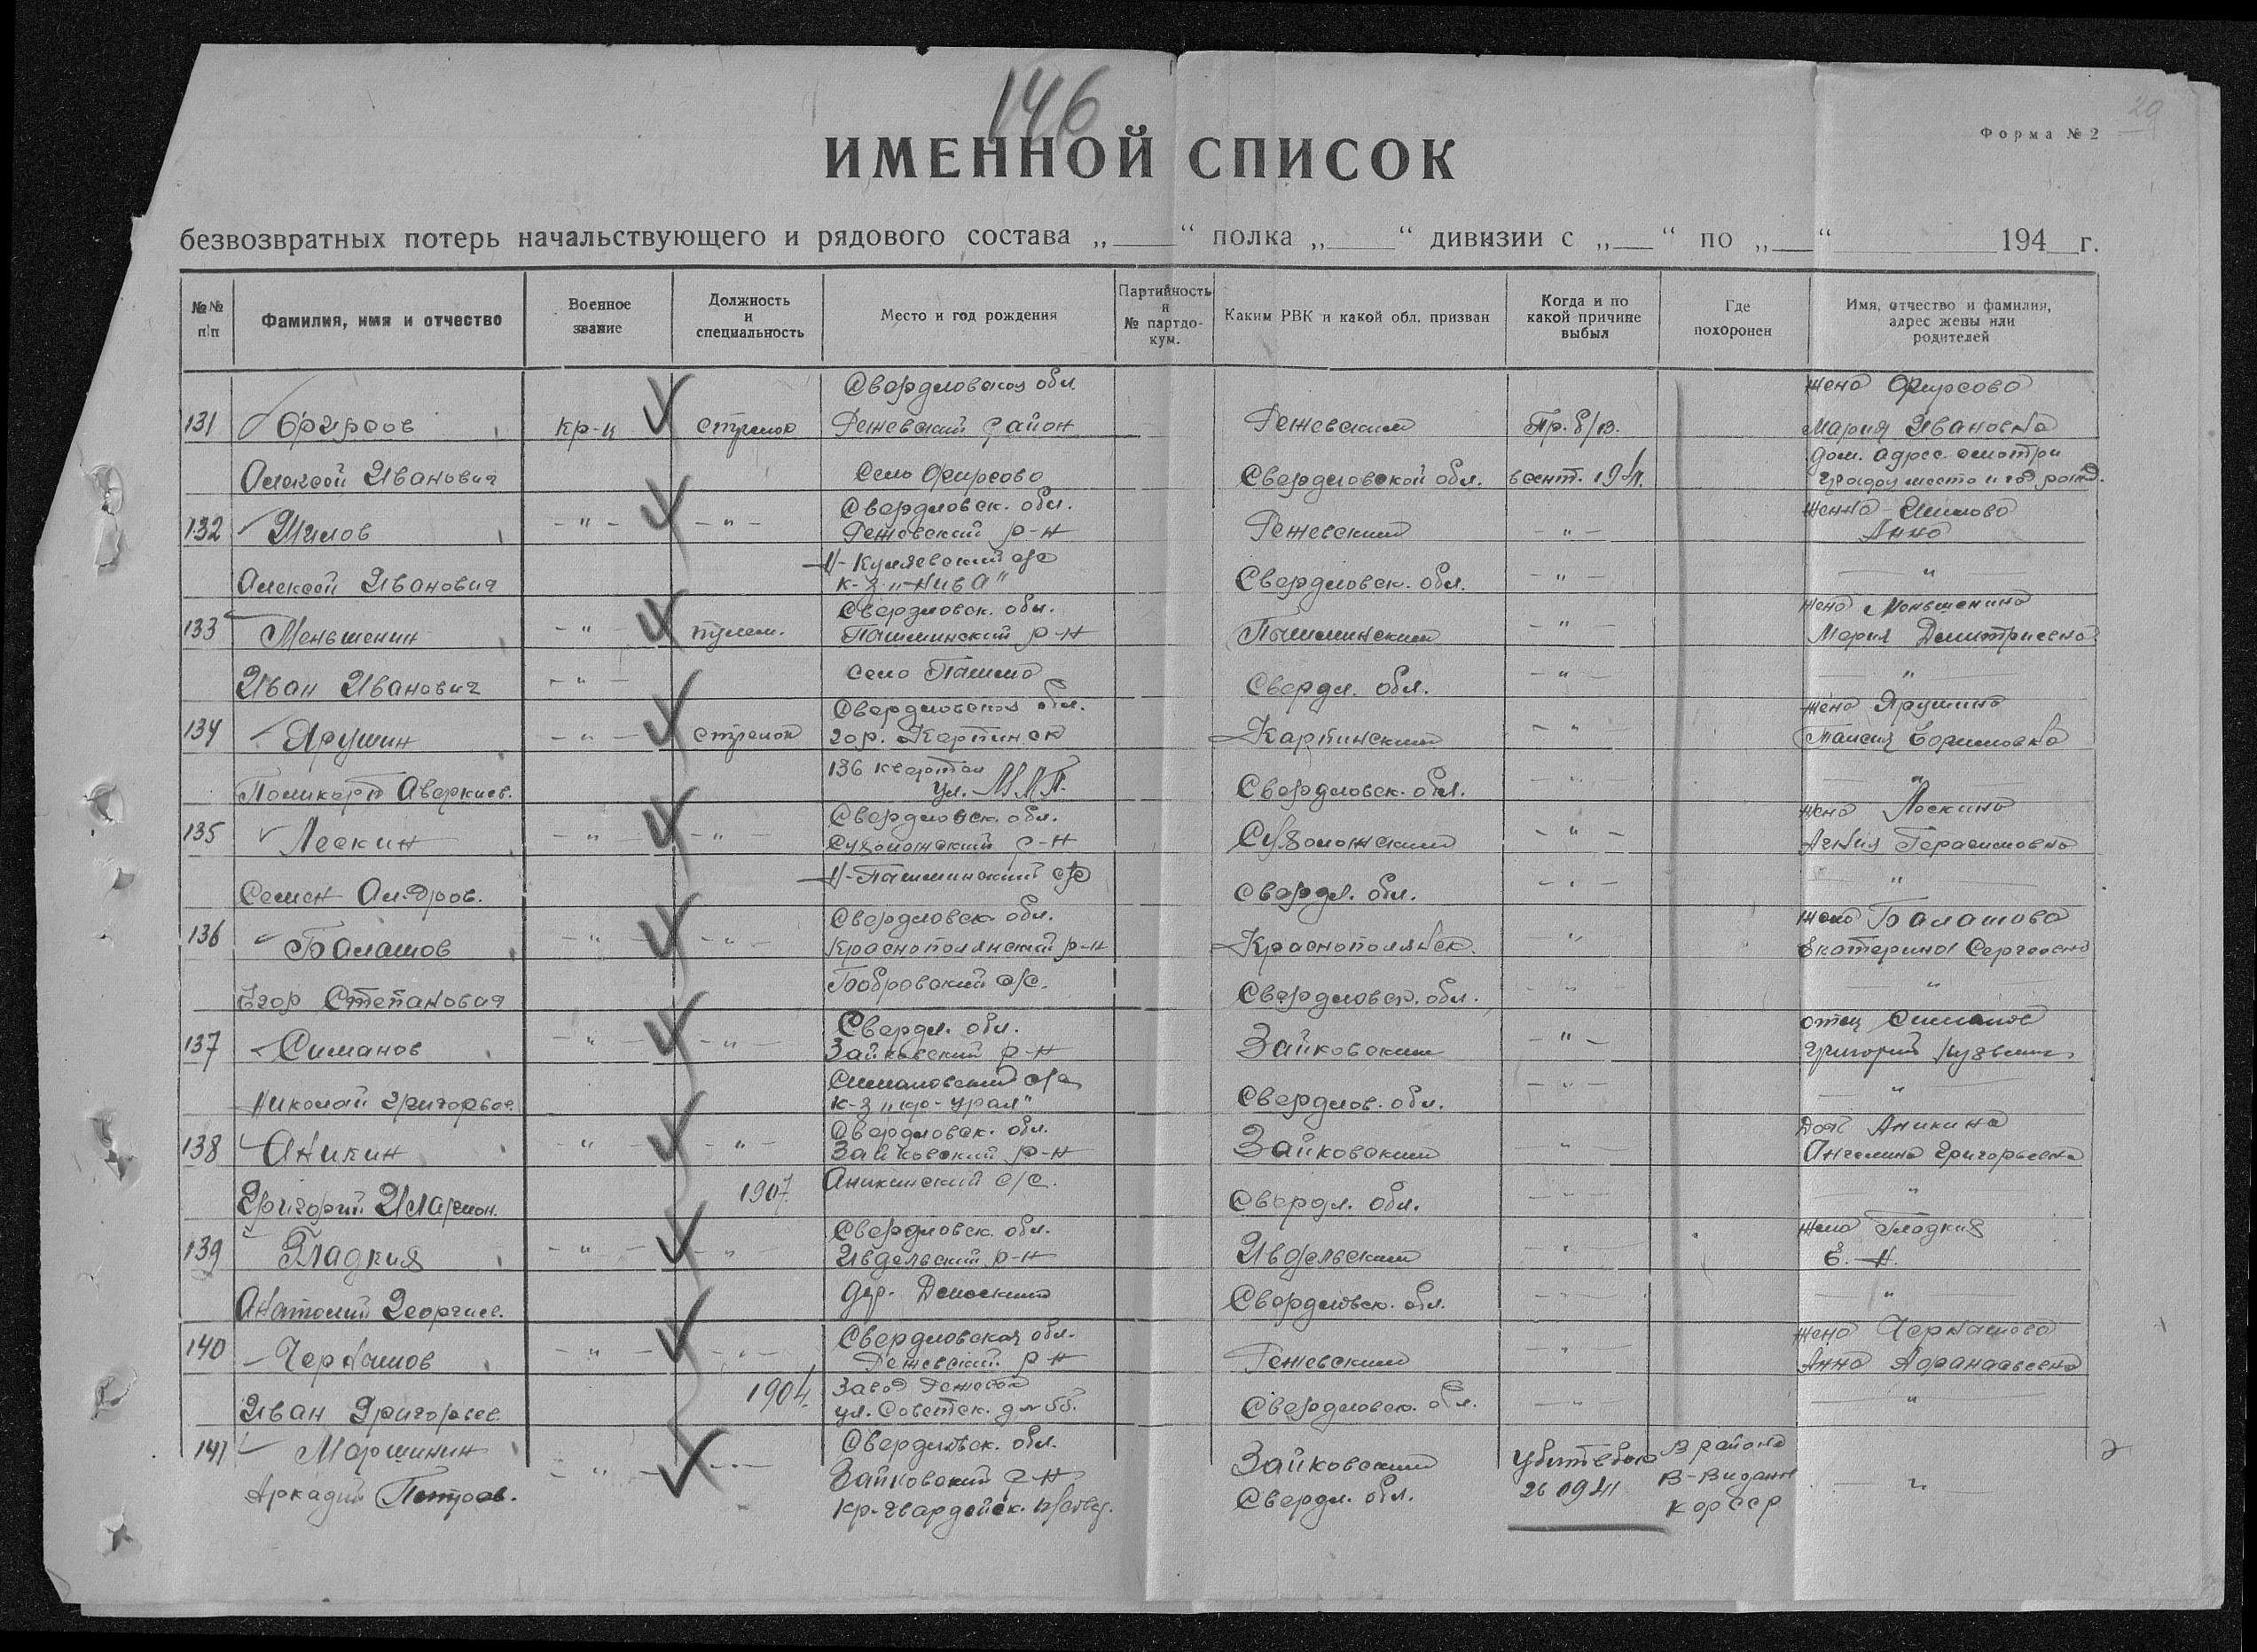 146
29
Форма № 2
ИМЕННОЙ СПИСОК
безвозвратных потерь начальствующего и рядового состава „ “ полка „ “ дивизии с „ “ по „ “ 194 г.
№№ п/п
Фамилия, имя и отчество
Военное звание
Должность и специальность
Место и год рождения
Партийность и № партдокум.
Каким РВК и какой обл. призван
Когда и по какой причине выбыл
Где похоронен
Имя, отчество и фамилия, адрес жены или родителей
Свердловская обл. жена Фирсова
131 Фирсов кр-ц стрелок Режевский район Режевским Пр. б/в. Мария Ивановна
дом. адрес смотри
Алексей Иванович Село Фирсово Свердловской обл. в сент. графу место и год рожд.
Свердловск. обл. жена Шилова
132 Шилов - " - - " - Режевский р-н Режевским - " - Анна
с/с
Алексей Иванович к-з „Нива" Свердловск. обл. - " - "
Свердловск. обл. жена Меньшенина
133 Меньшенин - " пулем. Пышминский р-н Пышминским - " - Мария Дмитриевна
Иван Иванович - " - село Пышма Свердл. обл. - " - "
Свердловская обл. жена Ярушина
134 Ярушин - " - стрелок гор. Карпинск Карпинским - " Таисия
136 квартал
Поликарп Аверкиев. ул. Свердловск. обл. - " - "
Свердловск. обл. жена Лескина
135 Лескин - " - - " - Сухоложский р-н Сухоложским - " - Герасимовна
Семен Андров. с/с Свердл. обл. - " - "
Свердловск. обл. жена Балашова
136 Балашов - " - - " - Краснополянский р-н Краснополянск. " Екатерина Сергеевна
Бобровский с/с.
Егор Степанович Свердловск. обл. - " - "
Свердл. обл. отец Симанов
137 Симанов - " - - " - Зайковский р-н Зайковским - " - Григорий
Симановский с/с
Николай Григорьев. к-з Урал" Свердлов. обл. - " - "
Свердловск. обл. Аникина
138 Аникин - " - - " - Зайковский р-н Зайковским " Ангелина Григорьевна
Григорий Иларион. 1907. Аникинский с/с. Свердл. обл. - " - "
Свердловск. обл. жена Гладких
139 Гладких - " - - " - Ивдельский р-н Ивдельским - " - Е. Н.
Анатолий Георгиев. дер. Свердловск. обл. - " - "
Свердловская обл. жена Чернашова
140 Чернашов - " - - " - Режевский р-н Режевским - " - Анна Афанасьевна
Завод
Иван Григорьев. 1904. ул. Советск. Свердловск. обл. - " - "
141 Маршинин Свердловск. обл. Зайковским В районе
- " - - " - Зайковский р-н В-Видане - " -
Аркадий Петров. Кр-гвардейск. Свердл. обл. Кар ССР